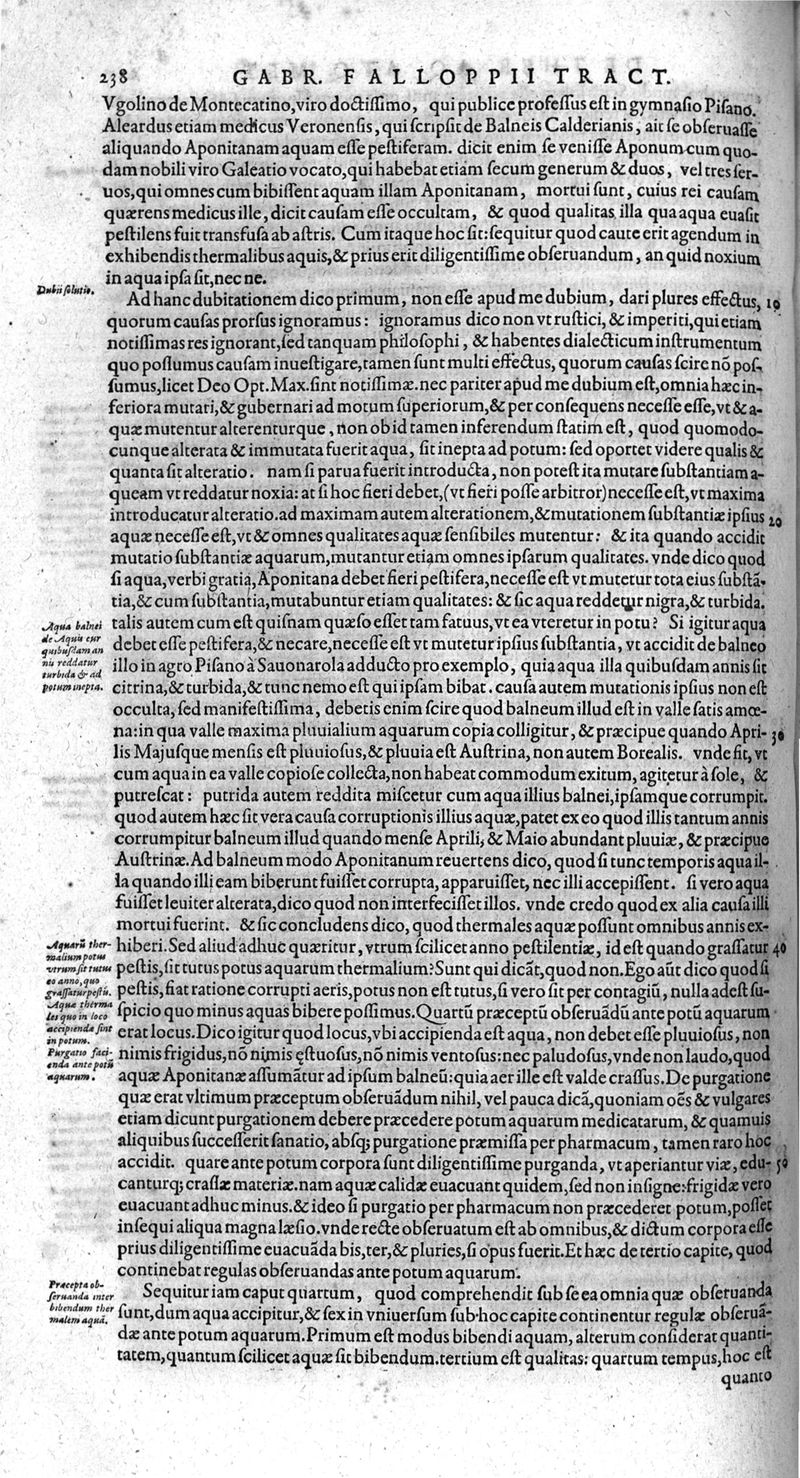 238 GABR. FALLOPPII TRACT.
Vgolino de Montecatino, viro doctiſſimo, qui publice profeſſus eſt in gymnaſio Piſano.
Aleardus etiam medicus Veronenſis, qui ſcripſit de Balneis Calderianis, ait ſe obſeruaſſe
aliquando Aponitanam aquam eſſe peſtiferam. dicit enim ſe veniſſe Aponum cum quo-
dam nobili viro Galeatio vocato, qui habebat etiam ſecum generum & duos, vel tres ſer-
uos, qui omnes cum bibiſſent aquam illam Aponitanam, mortui ſunt, cuius rei cauſam
quærens medicus ille, dicit cauſam eſſe occultam, & quod qualitas illa qua aqua euaſit
peſtilens fuit transfuſa ab aſtris. Cum itaque hoc ſit: ſequitur quod caute erit agendum in
exhibendis thermalibus aquis, & prius erit diligentiſſime obſeruandum, an quid noxium
in aqua ipſa ſit, nec ne.
Dubii ſolutio.
Ad hanc dubitationem dico primum, non eſſe apud me dubium, dari plures effectus, 10
quorum cauſas prorſus ignoramus: ignoramus dico non vt ruſtici, & imperiti, qui etiam
notiſſimas res ignorant, ſed tanquam philoſophi, & habentes dialecticum inſtrumentum
quo poſſumus cauſam inueſtigare, tamen ſunt multi effectus, quorum cauſas ſcire nõ poſ-
ſumus, licet Deo Opt. Max. ſint notiſſimæ. nec pariter apud me dubium eſt, omnia hæc in-
feriora mutari, & gubernari ad motum ſuperiorum, & per conſequens neceſſe eſſe, vt & a-
quæ mutentur alterenturque, non ob id tamen inferendum ſtatim eſt, quod quomodo-
cunque alterata & immutata fuerit aqua, ſit inepta ad potum: ſed oportet videre qualis &
quanta ſit alteratio. nam ſi parua fuerit introducta, non poteſt ita mutare ſubſtantiam a-
queam vt reddatur noxia: at ſi hoc fieri debet, (vt fieri poſſe arbitror) neceſſe eſt, vt maxima
introducatur alteratio. ad maximam autem alterationem, & mutationem ſubſtantiæ ipſius 20
aquæ neceſſe eſt, vt & omnes qualitates aquæ ſenſibiles mutentur: & ita quando accidit
mutatio ſubſtantiæ aquarum, mutantur etiam omnes ipſarum qualitates. vnde dico quod
ſi aqua, verbi gratia, Aponitana debet fieri peſtifera, neceſſe eſt vt mutetur tota eius ſubſtã-
tia, & cum ſubſtantia, mutabuntur etiam qualitates: & ſic aqua reddetur nigra, & turbida.
Aqua balnei
de Aquis cur
quibuſdam an
nis reddatur
turbida & ad
potum inepta.
talis autem cum eſt quiſnam quæſo eſſet tam fatuus, vt ea vteretur in potu? Si igitur aqua
debet eſſe peſtifera, & necare, neceſſe eſt vt mutetur ipſius ſubſtantia, vt accidit de balneo
illo in agro Piſano à Sauonarola adducto pro exemplo, quia aqua illa quibuſdam annis ſit
citrina, & turbida, & tunc nemo eſt qui ipſam bibat. cauſa autem mutationis ipſius non eſt
occulta, ſed manifeſtiſſima, debetis enim ſcire quod balneum illud eſt in valle ſatis amœ-
na: in qua valle maxima pluuialium aquarum copia colligitur, & præcipue quando Apri- 30
lis Majuſque menſis eſt pluuioſus, & pluuia eſt Auſtrina, non autem Borealis. vnde fit, vt
cum aqua in ea valle copioſe collecta, non habeat commodum exitum, agitetur à ſole, &
putreſcat: putrida autem reddita miſcetur cum aqua illius balnei, ipſamque corrumpit.
quod autem hæc ſit vera cauſa corruptionis illius aquæ, patet ex eo quod illis tantum annis
corrumpitur balneum illud quando menſe Aprili, & Maio abundant pluuiæ, & præcipue
Auſtrinæ. Ad balneum modo Aponitanum reuertens dico, quod ſi tunc temporis aqua il-
la quando illi eam biberunt fuiſſet corrupta, apparuiſſet, nec illi accepiſſent. ſi vero aqua
fuiſſet leuiter alterata, dico quod non interfeciſſet illos. vnde credo quod ex alia cauſa illi
mortui fuerint. & ſic concludens dico, quod thermales aquæ poſſunt omnibus annis ex-
Aquarũ ther-
malium potus
vtrum ſit tutus
eo anno, quo
graſſatur peſtis.
Aquæ therma
les quo in loco
accipiendæ ſint
in potum.
Purgatio faci-
enda ante potũ
aquarum.
hiberi. Sed aliud adhuc quæritur, vtrum ſcilicet anno peſtilentiæ, id eſt quando graſſatur 40
peſtis, ſit tutus potus aquarum thermalium? Sunt qui dicãt, quod non. Ego aũt dico quod ſi
peſtis, fiat ratione corrupti aeris, potus non eſt tutus, ſi vero ſit per contagiũ, nulla adeſt ſu-
ſpicio quo minus aquas bibere poſſimus. Quartũ præceptũ obſeruãdũ ante potũ aquarum
erat locus. Dico igitur quod locus, vbi accipienda eſt aqua, non debet eſſe pluuioſus, non
nimis frigidus, nõ nimis ęſtuoſus, nõ nimis ventoſus: nec paludoſus, vnde non laudo, quod
aquæ Aponitanæ aſſumãtur ad ipſum balneũ: quia aer ille eſt valde craſſus. De purgatione
quæ erat vltimum præceptum obſeruãdum nihil, vel pauca dicã, quoniam oẽs & vulgares
etiam dicunt purgationem debere præcedere potum aquarum medicatarum, & quamuis
aliquibus ſucceſſerit ſanatio, abſq; purgatione præmiſſa per pharmacum, tamen raro hoc
accidit. quare ante potum corpora ſunt diligentiſſime purganda, vt aperiantur viæ, edu- 50
canturq; craſſæ materiæ. nam aquæ calidæ euacuant quidem, ſed non inſigne: frigidæ vero
euacuant adhuc minus. & ideo ſi purgatio per pharmacum non præcederet potum, poſſet
inſequi aliqua magna læſio. vnde recte obſeruatum eſt ab omnibus, & dictum corpora eſſe
prius diligentiſſime euacuãda bis, ter, & pluries, ſi opus fuerit. Et hæc de tertio capite, quod
continebat regulas obſeruandas ante potum aquarum.
Præcepta ob-
ſeruanda inter
bibendum ther
malem aquã.
Sequitur iam caput quartum, quod comprehendit ſub ſe ea omnia quæ obſeruanda
ſunt, dum aqua accipitur, & ſex in vniuerſum ſub hoc capite continentur regulæ obſeruã-
dæ ante potum aquarum. Primum eſt modus bibendi aquam, alterum conſiderat quanti-
tatem, quantum ſcilicet aquæ ſit bibendum. tertium eſt qualitas: quartum tempus, hoc eſt
quanto